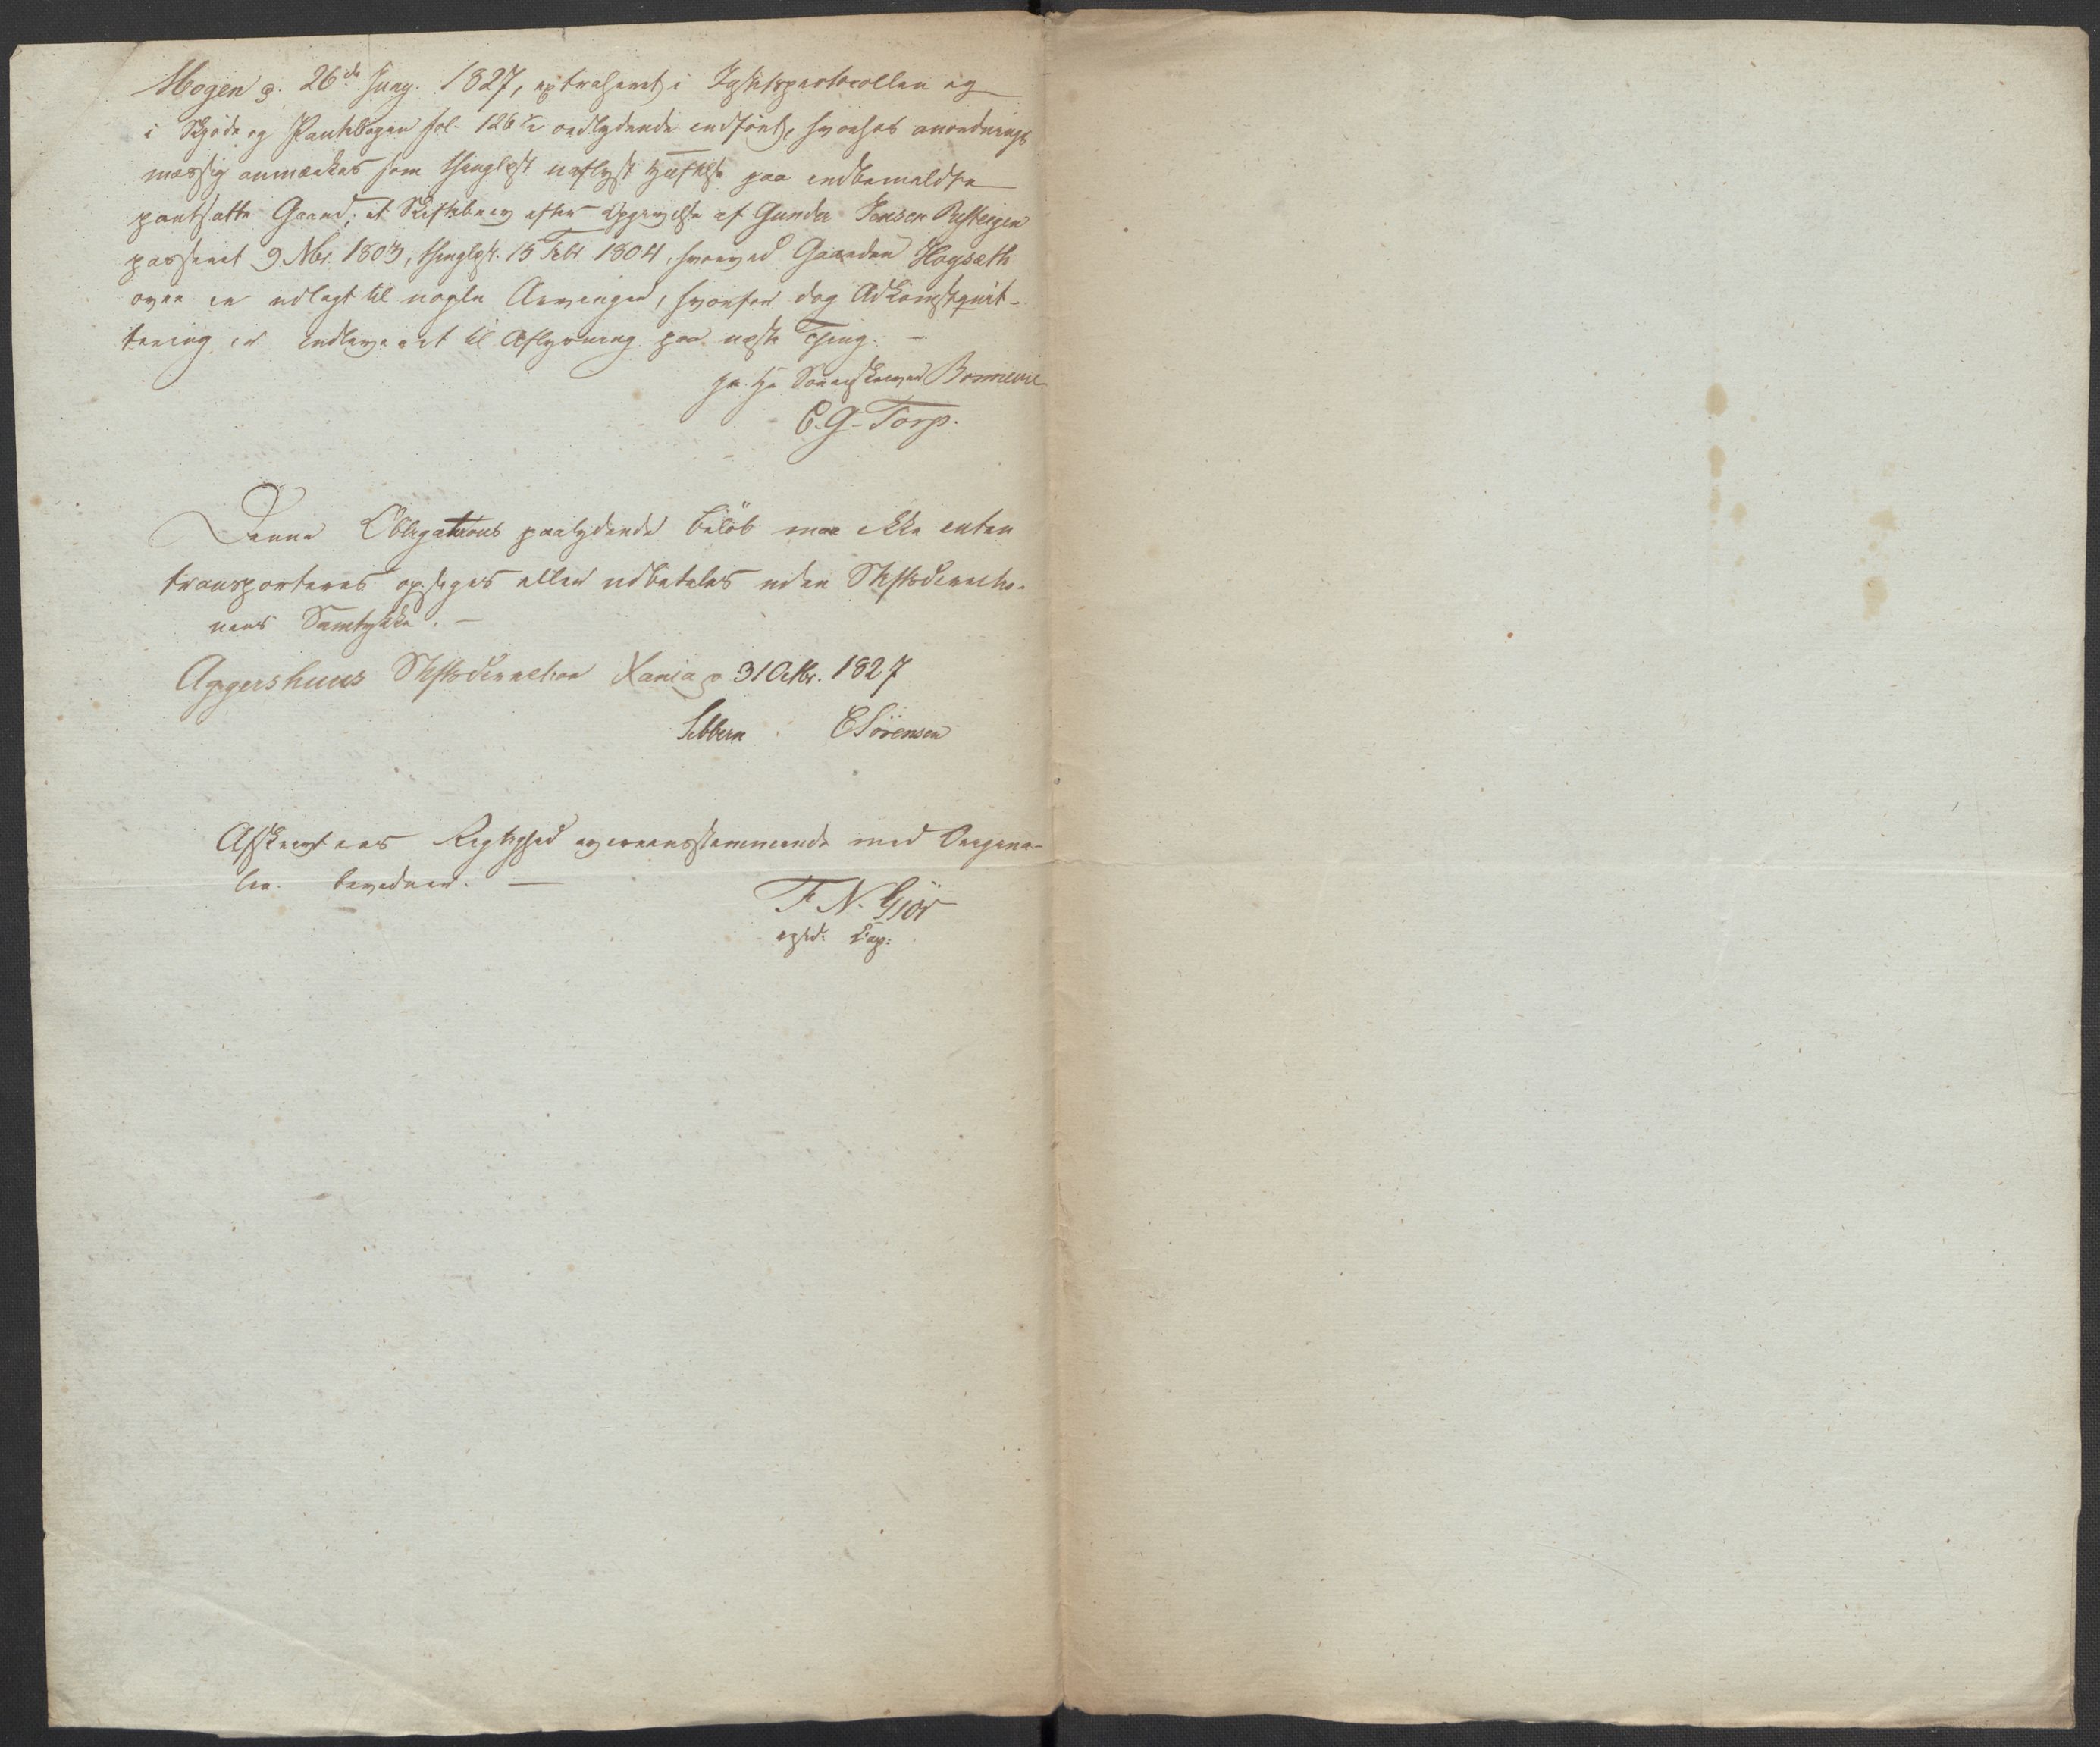 Mogen d. 26de Juny. 1827, extraheret i Justitsprotocollen og
i Skjøde og Pantebogen fol. 126 1/2 ordlydende indført, hvorhos anordnings
mæssig anmærkes som thinglæst uaflyst Hæftelse paa indbemeldte
pantsatte Gaard: et Skiftebrev efter Opgivelse af Gunder Jensen
passeret 9 Nbr. 1803, thinglyst 15 Febr 1804, hvorved Gaarden Hogsæth
ovre er udlagt til nogle Arvinger, hvorfor dog Adkomstqvit-
tering er indleveret til Aflysning paa neste Thing. -
Hr Sorenskriver Bonnevie
C. G. Torp.
Denne Obligations paalydende Beløb maa ikke enten
transporteres opsiges eller udbetales uden Stiftsdirectio-
nens Samtykke. -
Aggershuus Stiftsdirection Xania d 31 Octbr. 1827
Sibbern CSörensen
Afskrivtens Rigtighed overeensstemmende med Origina-
len bevidner. -
F N. Giör
Cap: